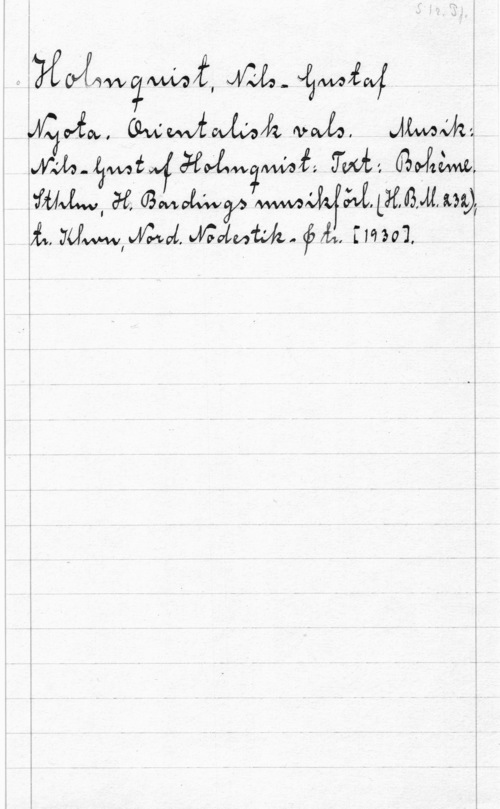 Holmquist, Nils-Gustaf
Nyota. Orientalisk vals. Musik:
Nils-Gustaf Holmquist. Text: Bohème.
Sthlm, H. Bardings musikförl. (H.B.M. 232),
tr. Khvn, Nord. Nodestik- & tr. [1930].